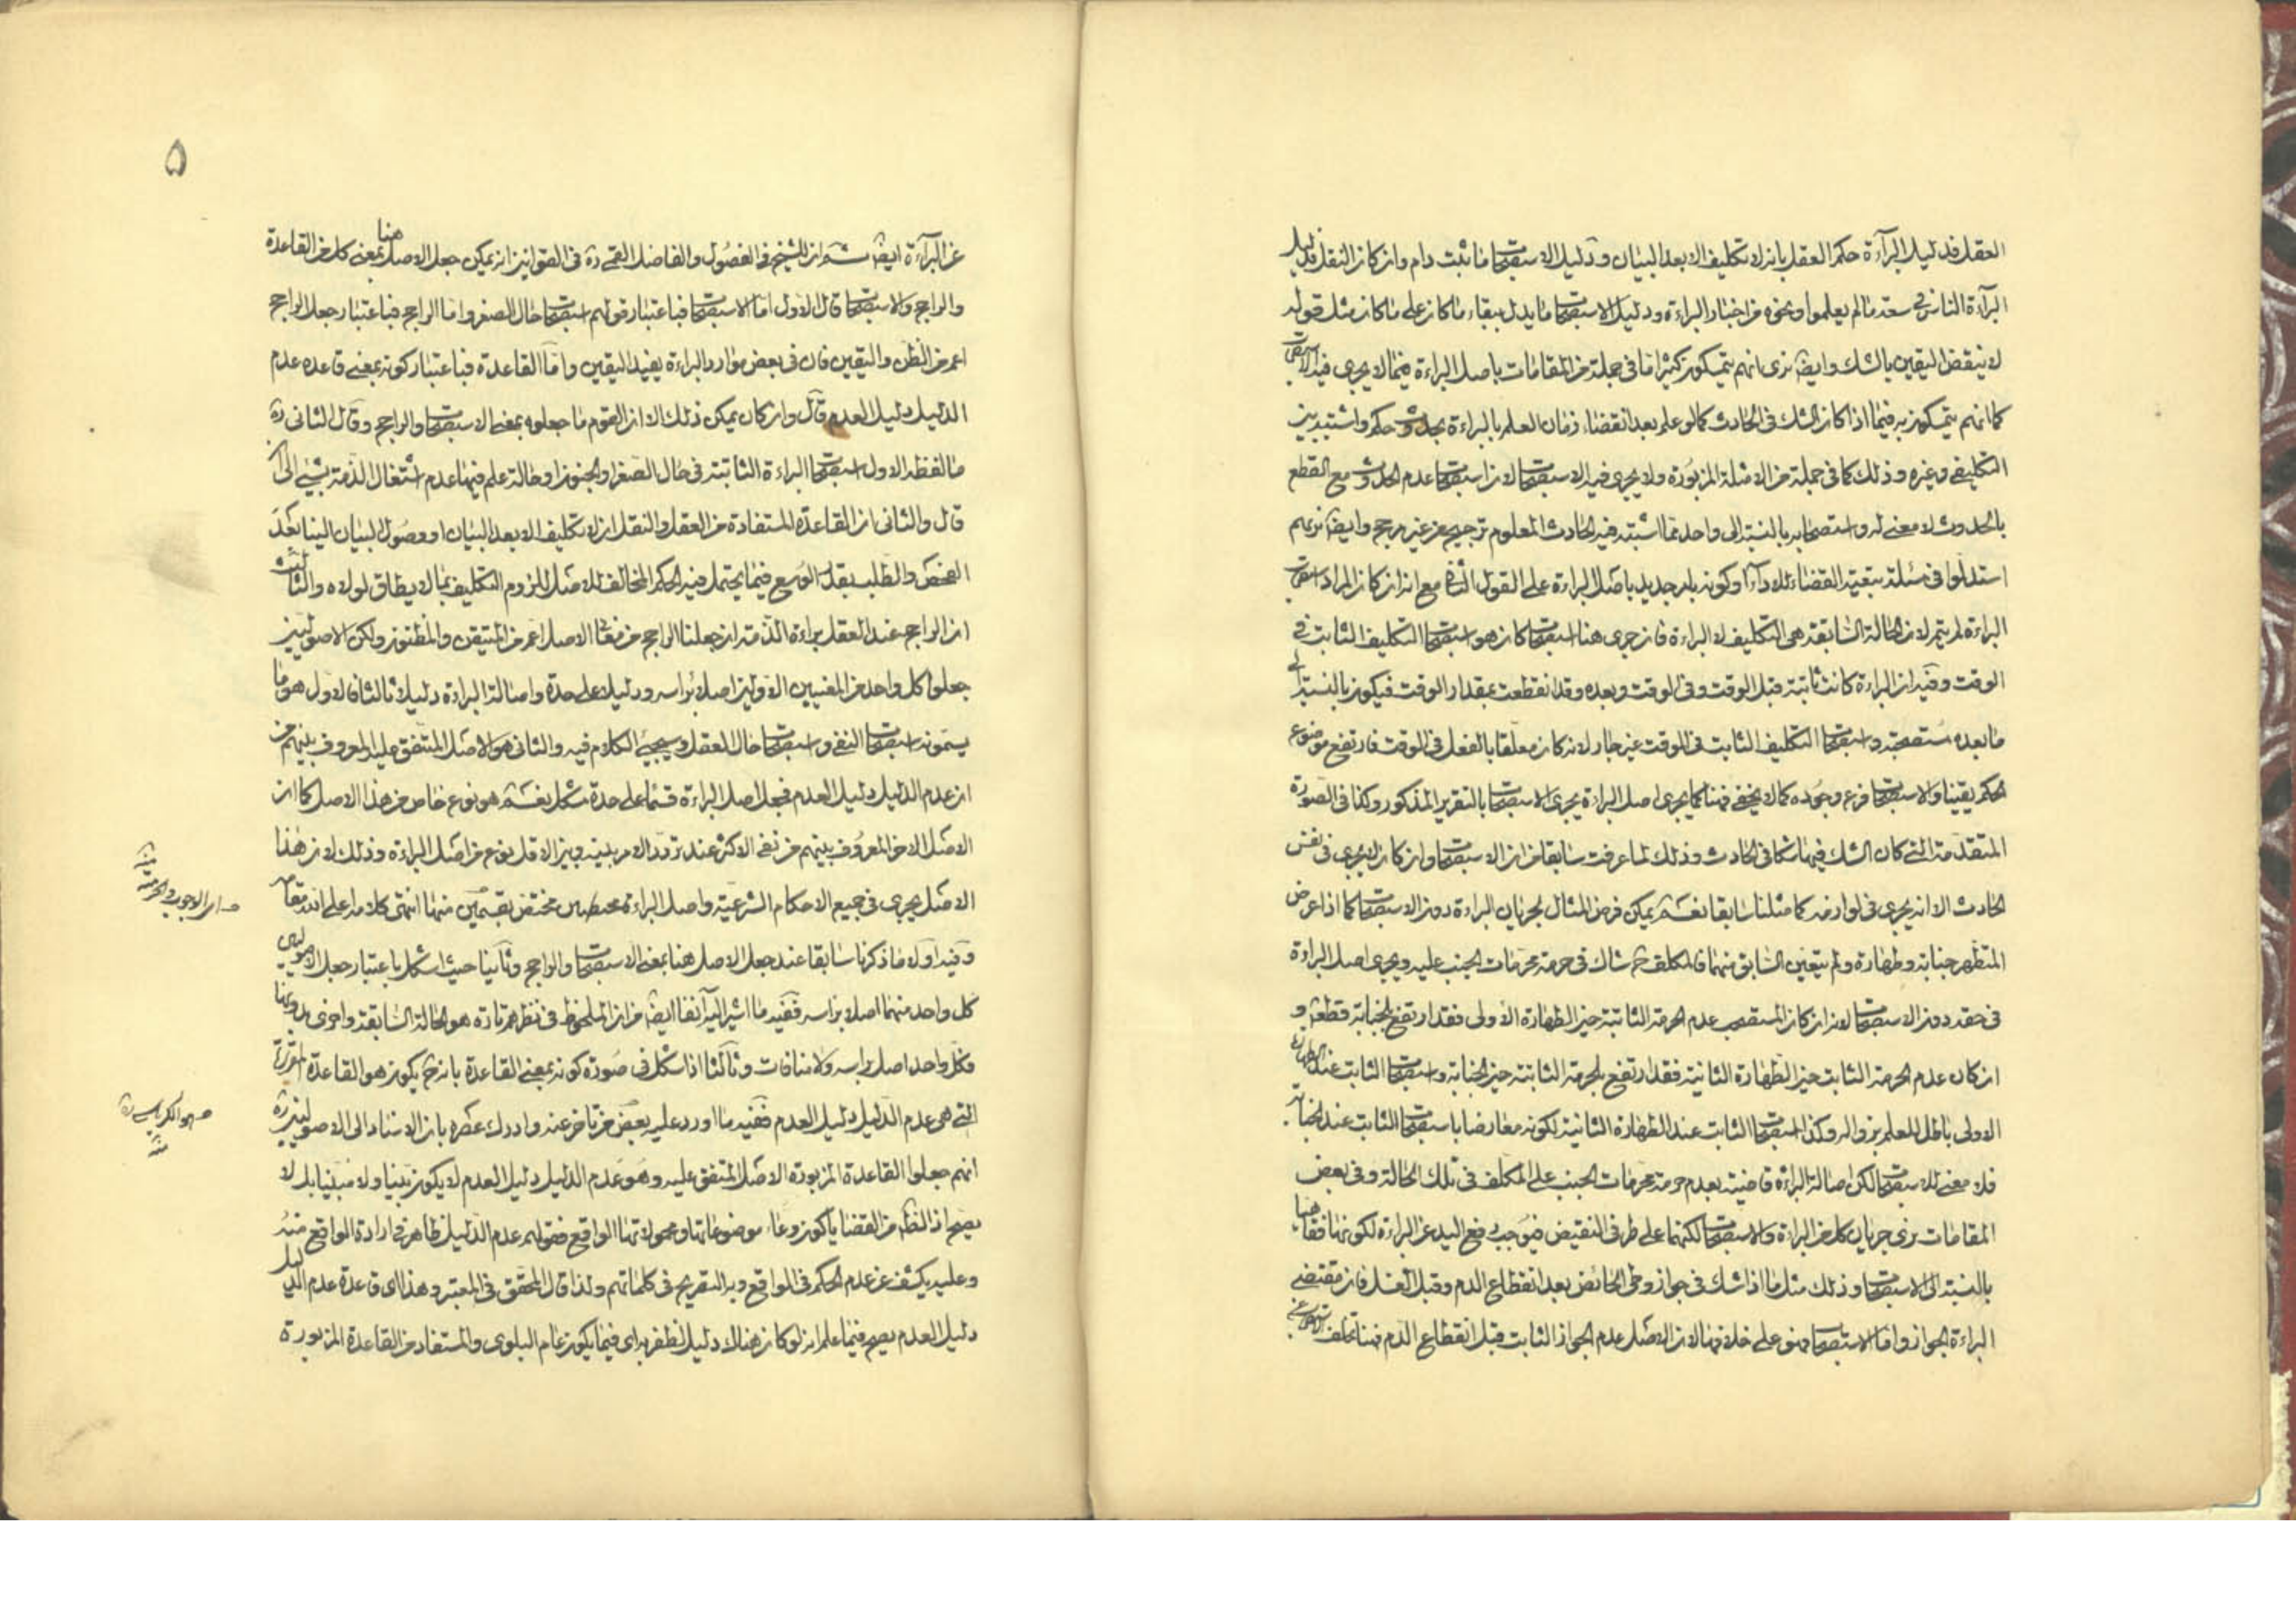 العقل فدليل البرآءة حكم العقل بان لا تكليف الا بعد البيان ودليل الاستصحاب ما ثبت دام وان كان النقل فدليل
البرآءة الناس في سعة ما لم يعلموا ونحوه من اخبار البراءة ودليل الاستصحاب ما يدل ببقاء ما كان على ما كان مثل قوله
لا ينقض اليقين بالشك وايضا نرى انهم يتمسكون كثيرا ما في جملة من المقامات باصل البراءة فيما لا يجرى فيه الاستصحاب
كما انهم يتمسكون به فيما اذا كان الشك في الحادث كما لو علم بعد انقضاء زمان العلم بالبراءة بحدوث حكم واشتبه بين
التكليفي وغيره وذلك كما في جملة من الامثلة المزبورة ولا يجرى فيه الاستصحاب لان استصحاب عدم الحدوث مع القطع
بالحدوث لا معنى له واستصحابه بالنسبة الى واحد مما اشتبه فيه الحادث المعلوم ترجيح من غير مرجح وايضا نريهم
استدلوا في مسئلة تبعية القضاء للاداء او كونه بامر جديد باصل البراءة على القول الثانى مع انه ان كان المراد استصحاب
البراءة لم يتم لان الحالة السابقة هى التكليف لا البراءة فان جرى هنا استصحاب كان هو استصحاب التكليف الثابت في
الوقت وفيه ان البراءة كانت ثابتة قبل الوقت وفى الوقت وبعده وقد انقطعت بمقدار الوقت فيكون بالنسبة الى
ما بعده مستصحبة واستصحاب التكليف الثابت فى الوقت غير جار لانه كان معلقا بالفعل فى الوقت فارتفع موضوع
الحكم يقينا والاستصحاب فرع وجوده كما لا يخفى فهنا كما يجرى اصل البراءة يجرى الاستصحاب بالتقرير المذكور وكذا فى الصورة
المتقدمة التى كان الشك فيها شكا فى الحادث وذلك لما عرفت سابقا من ان الاستصحاب وان كان لا يجرى فى نفس
الحادث الا انه يجرى فى لوازمه كما مثلنا سابقا نعم يمكن فرض المثال لجريان البراءة دون الاستصحاب كما اذا عرض
المتطهر جنابة وطهارة ولم يتعين السابق منهما فالمكلف ح شاك فى حرمة محرمات الجنب عليه ويجرى اصل البراءة
فى حقه دون الاستصحاب لانه ان كان المستصحب عدم الحرمة الثابتة حين الطهارة الاولى فقد ارتفع بالجنابة قطعا و
ان كان عدم الحرمة الثابت حين الطهارة الثانية فقد ارتفع بالحرمة الثابتة حين الجنابة واستصحاب الثابت عند الطهارة
الاولى باطل للعلم بزواله وكذا استصحاب الثابت عند الطهارة الثانية لكونه معارضا باستصحاب الثابت عند الجنابة
فلا معنى للاستصحاب لكن اصالة البراءة قاضية بعدم حرمة محرمات الجنب على المكلف فى تلك الحالة وفى بعض
المقامات نرى جريان كل من البراءة والاستصحاب لكنهما على طرفى النقيض فيوجب رفع اليد عن البراءة لكونها فقاهتيا
بالنسبة الى الاستصحاب وذلك مثل ما اذا شك فى جواز وطى الحائض بعد انقطاع الدم وقبل الغسل فان مقتضى
البراءة الجواز واما الاستصحاب فهو على خلافها لان الاصل عدم الجواز الثابت قبل انقطاع الدم فهنا تخلف الاستصحاب
۵
عن البرآءة ايضا ثم ان الشيخ فى الفصول والفاضل القمى ره فى القوانين انه يمكن جعل الاصل هنا بمعنى كل من القاعدة
والراجح والاستصحاب قال الاول اما الاستصحاب فباعتبار قولهم استصحاب حال الصغر واما الراجح فباعتبار جعل الراجح
اعم من الظن واليقين فان فى بعض موارد البراءة يفيد اليقين واما القاعدة فباعتبار كونه بمعنى قاعدة عدم
الدليل دليل العدم قال وان كان يمكن ذلك الا ان القوم ما جعلوه بمعنى الاستصحاب والراجح وقال الثانى ره
ما لفظه الاول استصحاب البراءة الثابتة فى حال الصغر او الجنون او حالة علم فيها عدم اشتغال الذمة بشيء الى ان
قال والثانى ان القاعدة المستفادة من العقل والنقل ان لا تكليف الا بعد البيان او وصول البيان الينا بعد
الفحص والطلب بقدر الوسع فيما يحتمل فيه الحكم المخالف للاصل للزوم التكليف بما لا يطاق لولاه والثالث
ان الراجح عند العقل براءة الذمة ان جعلنا الراجح من معانى الاصل اعم من المتيقن والمظنون ولكن الاصوليين
جعلوا كل واحد من المعنيين الاولين اصلا براسه ودليلا على حدة واصالة البراءة دليلا ثالثا فالاول هو ما
يسمونه استصحاب النفى واستصحاب حال العقل وسيجئ الكلام فيه والثانى هو الاصل المتفق عليه المعروف بينهم من
ان عدم الدليل دليل العدم فجعل اصل البراءة قسما على حدة مشكل نعم هو نوع خاص من هذا الاصل كما ان
الاصل الاخر المعروف بينهم من نفى الاكثر عند تردد الامر بينه وبين الاقل نوع من اصل البراءة وذلك لان هذا
الاصل يجرى فى جميع الاحكام الشرعية واصل البراءة مختص بقسمين منها انتهى كلامه اعلى الله مقامه
وفيه اولا ما ذكرنا سابقا عند جعل الاصل هنا بمعنى الاستصحاب والراجح وثانيا حيث اشكل باعتبار جعل الاصوليين
كل واحد منهما اصلا براسه ففيه ما اشير اليه آنفا ايضا من ان الملحوظ فى نظرهم تارة هو الحالة السابقة واخرى بدونها
فكل واحد اصل براسه ولا منافات وثالثا اذا شكل فى صورة كونه بمعنى القاعدة بانه ح يكون هو القاعدة المقررة
التى هى عدم الدليل دليل العدم ففيه ما اورد عليه بعض من تاخر عنه وادرك عصره بان الاسناد الى الاصوليين ره
انهم جعلوا القاعدة المزبورة الاصل المتفق عليه وهو عدم الدليل دليل العدم لا يكون بينا ولا مبنيا بل لا
يصح اذ الظاهر من القضايا كون وعاء موضوعاتها ومحمولاتها الواقع فقولهم عدم الدليل ظاهر فى ارادة الواقع منه
وعليه يكشف عن عدم الحكم فى الواقع وبه التصريح فى كلماتهم ولذا قال المحقق فى المعتبر وهذا اى قاعدة عدم الدليل
دليل العدم يصح فيما علم انه لو كان هناك دليل لظفر به اى فيما يكون عام البلوى والمستفاد من القاعدة المزبورة
الوجوب والحرمة منه
هو الكرباسى ره منه